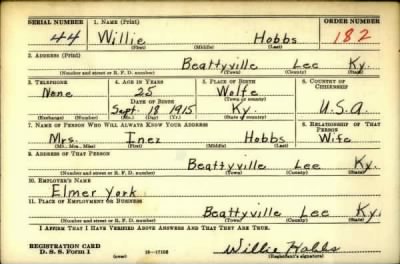 SERIAL NUMBER 1. NAME (Print) ORDER NUMBER
44 Willie Hobbs 182
(First) (Middle) (Last)
2. ADDRESS (Print)
Beattyville Lee Ky.
(Number and street or R. F. D. number) (Town) (County) (State)
3. TELEPHONE 4. AGE IN YEARS 5. PLACE OF BIRTH 6. COUNTRY OF CITIZENSHIP
None 25 Wolfe
DATE OF BIRTH (Town or county)
Sept. 18 1915 Ky. U.S.A.
(Exchange) (Number) (Mo.) (Day) (Yr.) (State or country)
7. NAME OF PERSON WHO WILL ALWAYS KNOW YOUR ADDRESS 8. RELATIONSHIP OF THAT PERSON
Mrs. Inez Hobbs Wife
(Mr., Mrs., Miss) (First) (Middle) (Last)
9. ADDRESS OF THAT PERSON
Beattyville Lee Ky.
(Number and street or R. F. D. number) (Town) (County) (State)
10. EMPLOYER'S NAME
Elmer York
11. PLACE OF EMPLOYMENT OR BUSINESS
Beattyville Lee Ky.
(Number and street or R. F. D. number) (Town) (County) (State)
I AFFIRM THAT I HAVE VERIFIED ABOVE ANSWERS AND THAT THEY ARE TRUE.
REGISTRATION CARD
D. S. S. Form 1 (over) Willie Hobbs
(Registrant's signature)